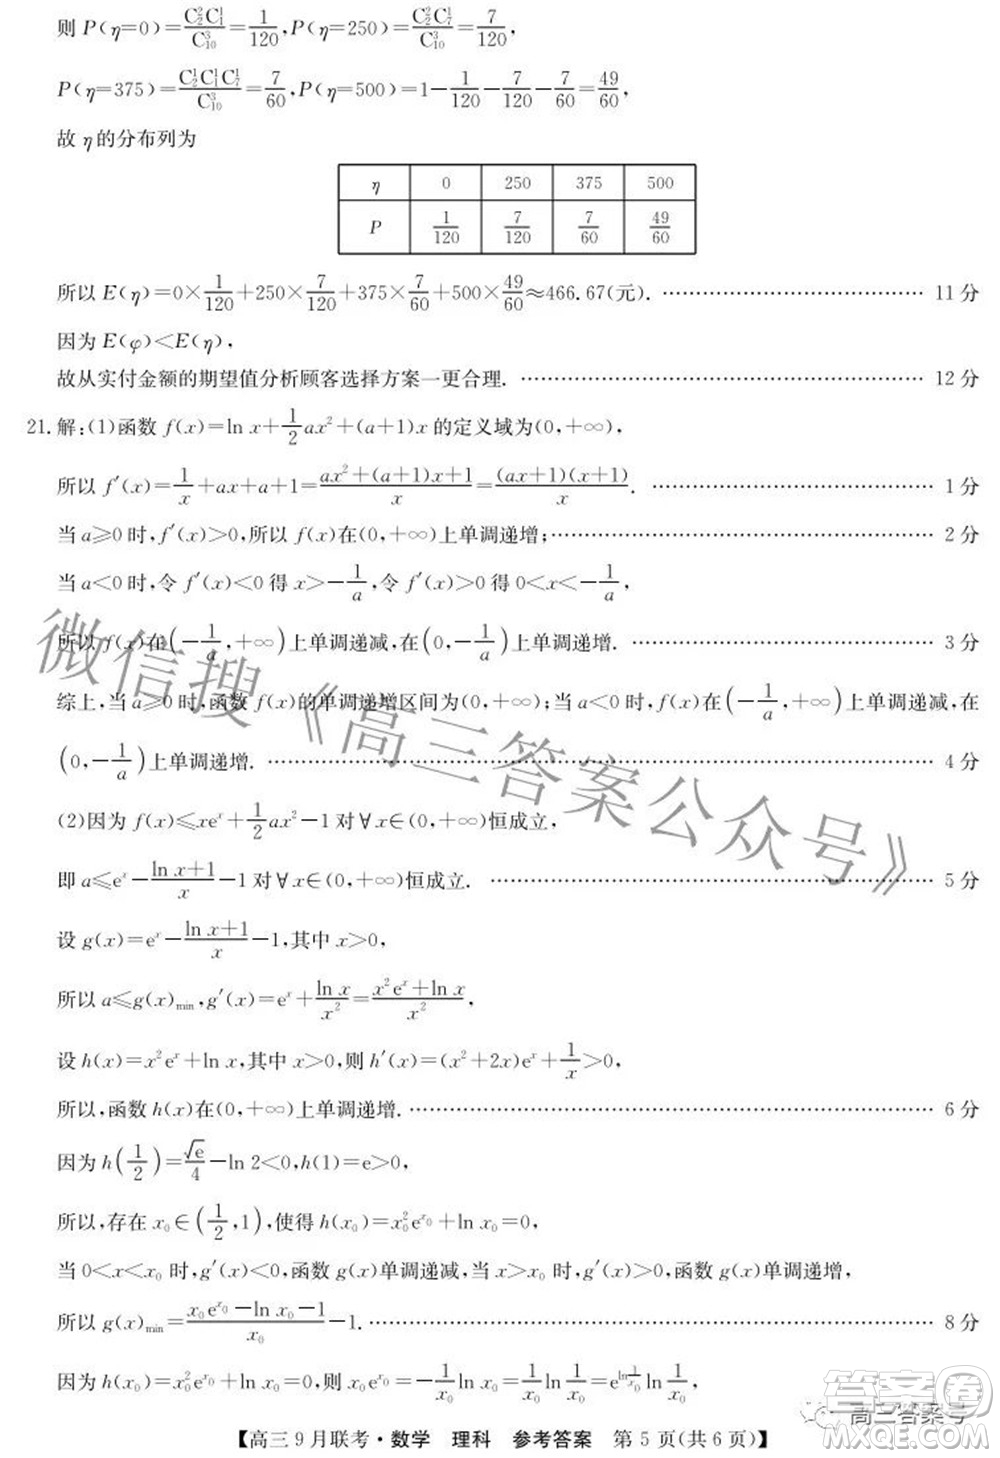 则 P(η=0)=C₂²C₁¹/C₁₀³=1/120,P(η=250)=C₂²C₇¹/C₁₀³=7/120,
P(η=375)=C₂¹C₁¹C₇¹/C₁₀³=7/60,P(η=500)=1-1/120-7/120-7/60=49/60,
故 η 的分布列为
η 0 250 375 500
P 1/120 7/120 7/60 49/60
所以 E(η)=0×1/120+250×7/120+375×7/60+500×49/60≈466.67(元). …… 11 分
因为 E(φ)<E(η),
故从实付金额的期望值分析顾客选择方案一更合理. …… 12 分
21.解:(1)函数 f(x)=ln x+1/2ax²+(a+1)x 的定义域为(0,+∞),
所以 f′(x)=1/x+ax+a+1=(ax²+(a+1)x+1)/x=(ax+1)(x+1)/x. …… 1 分
当 a≥0 时,f′(x)>0,所以 f(x)在(0,+∞)上单调递增;…… 2 分
当 a<0 时,令 f′(x)<0 得 x>-1/a,令 f′(x)>0 得 0<x<-1/a,
所以 f(x)在(-1/a,+∞)上单调递减,在(0,-1/a)上单调递增. …… 3 分
综上,当 a≥0 时,函数 f(x)的单调递增区间为(0,+∞);当 a<0 时,f(x)在(-1/a,+∞)上单调递减,在
(0,-1/a)上单调递增. …… 4 分
(2)因为 f(x)≤xeˣ+1/2ax²-1 对∀x∈(0,+∞)恒成立,
即 a≤eˣ-(ln x+1)/x-1 对∀x∈(0,+∞)恒成立. …… 5 分
设 g(x)=eˣ-(ln x+1)/x-1,其中 x>0,
所以 a≤g(x)min,g′(x)=eˣ+ln x/x²=(x²eˣ+ln x)/x²,
设 h(x)=x²eˣ+ln x,其中 x>0,则 h′(x)=(x²+2x)eˣ+1/x>0,
所以,函数 h(x)在(0,+∞)上单调递增. …… 6 分
因为 h(1/2)=√e/4-ln 2<0,h(1)=e>0,
所以,存在 x₀∈(1/2,1),使得 h(x₀)=x₀²e^x₀+ln x₀=0,
当 0<x<x₀ 时,g′(x)<0,函数 g(x)单调递减,当 x>x₀ 时,g′(x)>0,函数 g(x)单调递增,
所以 g(x)min=(x₀e^x₀-ln x₀-1)/x₀-1. …… 8 分
因为 h(x₀)=x₀²e^x₀+ln x₀=0,则 x₀e^x₀=-1/x₀ln x₀=1/x₀ln 1/x₀=e^(ln 1/x₀)ln 1/x₀,
【高三 9 月联考·数学 理科 参考答案 第 5 页(共 6 页)】
微信搜《高三答案公众号》
高三答案号
答案圈
MXQE.COM